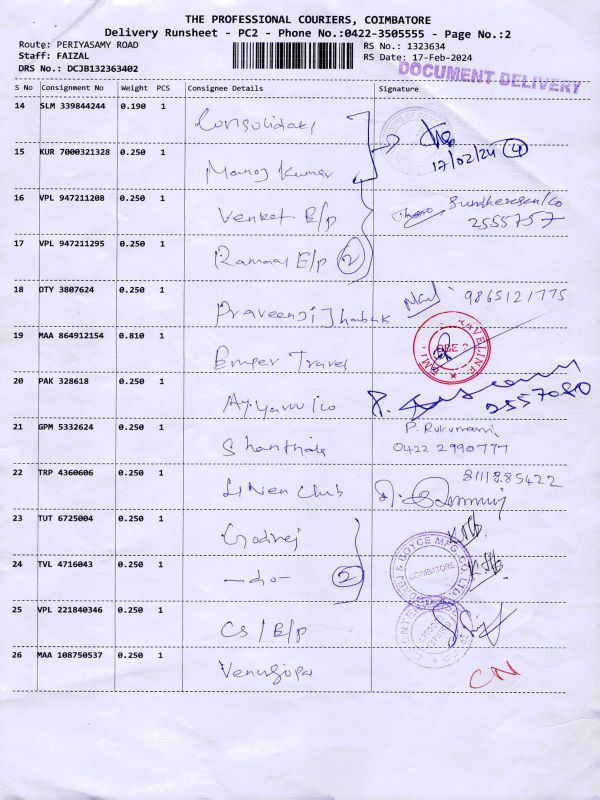 THE PROFESSIONAL COURIERS, COIMBATORE
Delivery Runsheet - PC2 - Phone No.:0422-3505555 - Page No.:2
Route: PERIYASAMY ROAD
RS No.: 1323634
Staff: FAIZAL
RS Date: 17-Feb-2024
DRS No.: DCJB132363402
DOCUMENT DELIVERY
S No Consignment No Weight PCS Consignee Details Signature
14 SLM 339844244 0.190 1 Consolidate
15 KUR 7000321328 0.250 1 Manoj Kumar 17/02/24 4
16 VPL 947211208 0.250 1 Venket E/p
2555757
17 VPL 947211295 0.250 1 Ramaas E/p 2
18 DTY 3807624 0.250 1 Praveenji Jhabak 9865121775
19 MAA 864912154 0.810 1 Travel
20 PAK 328618 0.250 1 2557080
21 GPM 5332624 0.250 1 Shanthala P. Rukumani
0422 2990777
22 TRP 4360606 0.250 1 Linen Club 8111885422
23 TUT 6725004 0.250 1 Godrej
24 TVL 4716043 0.250 1 -do- 2 COIMBATORE
25 VPL 221840346 0.250 1 CS / E/p
26 MAA 108750537 0.250 1 Venugopal CN